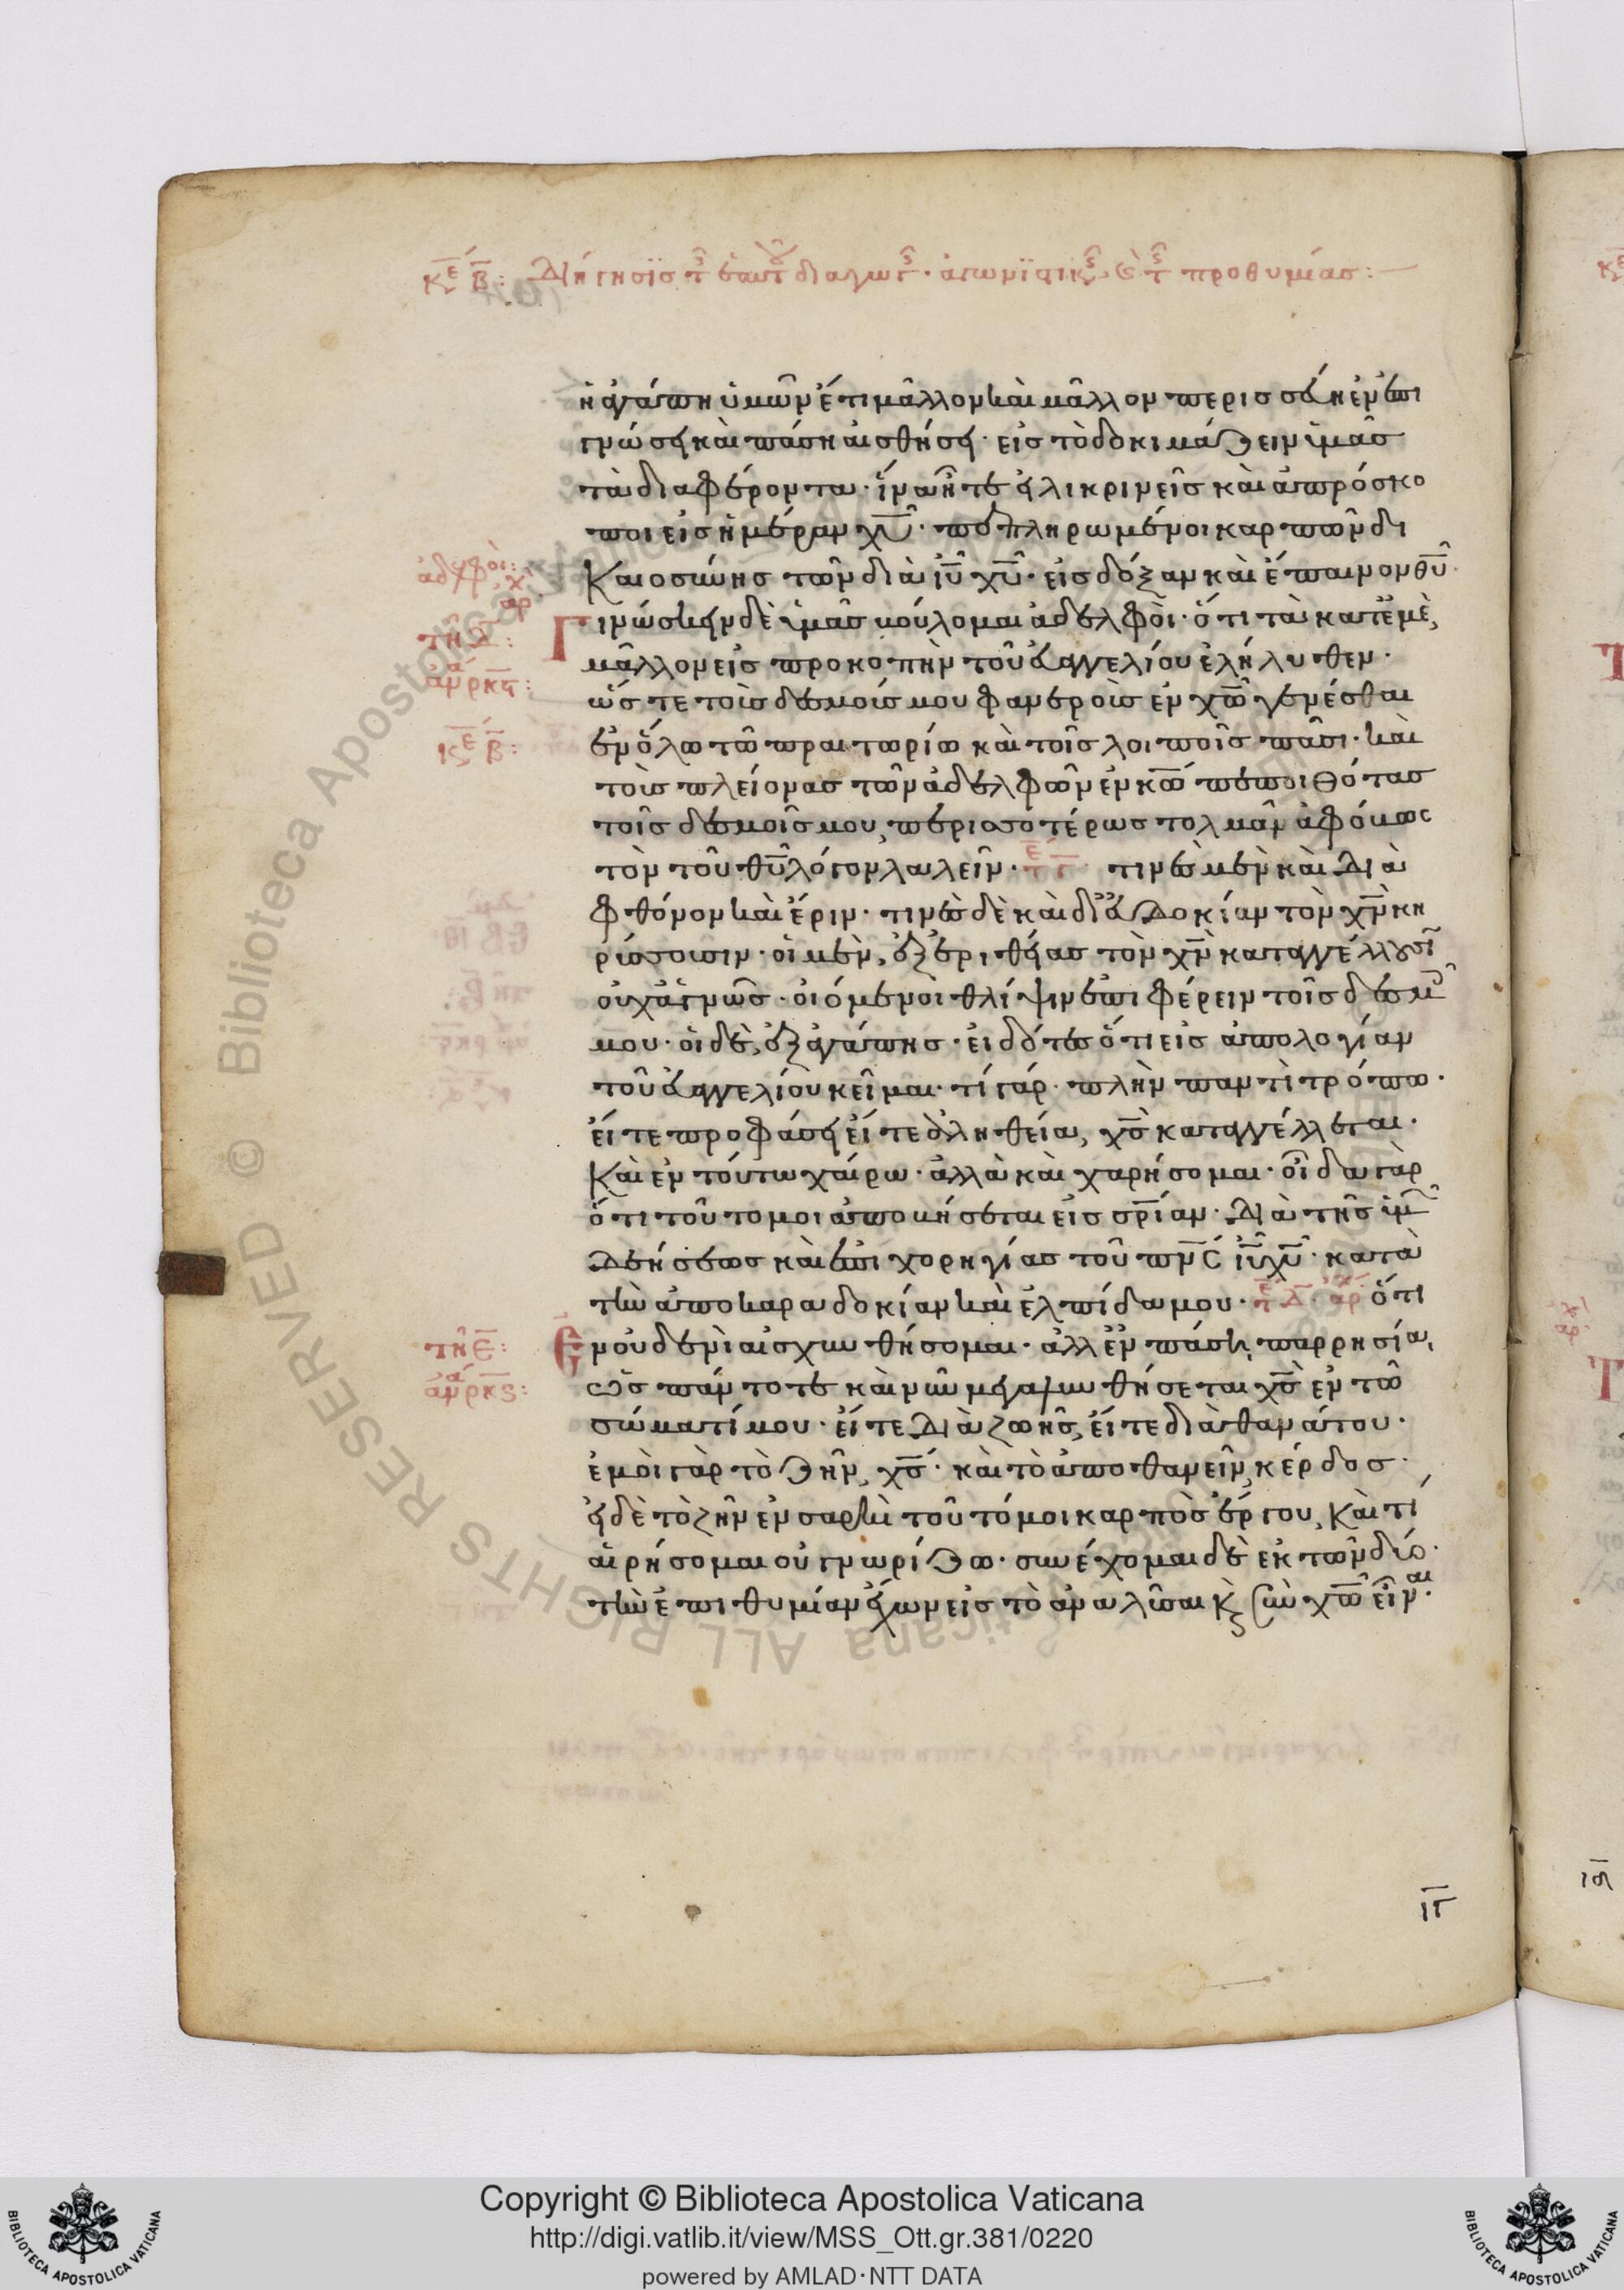 κε β: Διήγησϊς τῆς ἑαυτοῦ διαγωγῆς· ἀγωνϊστικῆς καὶ τῆς προθυμίας:
ἡ ἀγάπη ὑμῶν ἔτι μᾶλλον καὶ μᾶλλον περισσεύη ἐν ἐπι
γνώσει καὶ πάση αἰσθήσει· εἰς τὸ δοκιμάζειν ὑμᾶς
τὰ διαφέροντα· ἵνα ἦτε εἰλικρινεῖς καὶ ἀπρόσκο
ποι εἰς ἡμέραν χυ· πεπληρωμένοι καρπῶν δι
καιοσύνης τῶν διὰ ιυ χυ· εἰς δόξαν καὶ ἔπαινον θυ·
ἀδελφοί:
αρχ
Γινώσκειν δὲ ὑμᾶς βούλομαι ἀδελφοὶ· ὅτι τὰ κατ' ἐμὲ,
τῆ δ:
μᾶλλον εἰς προκοπὴν τοῦ εὐαγγελίου ἐλήλυθεν·
ὥστε τοὺς δεσμούς μου φανεροὺς ἐν χω γενέσθαι
κε β:
ἐν ὅλω τῶ πραιτωρίω καὶ τοῖς λοιποῖς πᾶσι· καὶ
τοὺς πλείονας τῶν ἀδελφῶν ἐν κω πεποιθότας
τοῖς δεσμοῖς μου, περισσοτέρως τολμᾶν ἀφόβως
τὸν τοῦ θυ λόγον λαλεῖν· τε γ τινὲς μὲν καὶ διὰ
φθόνον καὶ ἔριν· τινὲς δὲ καὶ δι' εὐδοκίαν τὸν χν κη
ρύσσουσιν· οἱ μὲν, ἐξ ἐριθείας τὸν χν καταγγέλλουσι
οὐχ ἁγνῶς· οἰόμενοι θλίψιν ἐπιφέρειν τοῖς δεσμοῖς
μου· οἱ δὲ, ἐξ ἀγάπης· εἰδότες ὅτι εἰς ἀπολογίαν
τοῦ εὐαγγελίου κεῖμαι· τί γάρ· πλὴν παντὶ τρόπω·
εἴτε προφάσει εἴτε ἀληθεία, χς καταγγέλλεται·
καὶ ἐν τούτω χαίρω· ἀλλὰ καὶ χαρήσομαι· οἶδα γὰρ
ὅτι τοῦτο μοι ἀποβήσεται εἰς σριαν· διὰ τῆς ὑμῶν
δεήσεως καὶ ἐπιχορηγίας τοῦ πνς ιυ χυ· κατὰ
τὴν ἀποκαραδοκίαν καὶ ἐλπίδα μου· τε δ αρχ ὅτι
τῆ ε:
Ἐν οὐδενὶ αἰσχυνθήσομαι· ἀλλ' ἐν πάση παρρησία,
ὡς πάντοτε καὶ νῦν μεγαλυνθήσεται χς ἐν τῶ
σώματί μου· εἴτε διὰ ζωῆς, εἴτε διὰ θανάτου·
ἐμοὶ γὰρ τὸ ζῆν, χς· καὶ τὸ ἀποθανεῖν, κέρδος·
εἰ δὲ τὸ ζῆν ἐν σαρκὶ τοῦτό μοι καρπὸς ἔργου, καὶ τί
αἱρήσομαι οὐ γνωρίζω· συνέχομαι δὲ ἐκ τῶν δύο·
τὴν ἐπιθυμίαν ἔχων εἰς τὸ ἀναλῦσαι καὶ σὺν χω εἶναι·
ιγ
© Biblioteca Apostolica Vaticana ALL RIGHTS RESERVED
Copyright © Biblioteca Apostolica Vaticana
http://digi.vatlib.it/view/MSS_Ott.gr.381/0220
powered by AMLAD·NTT DATA
BIBLIOTECA APOSTOLICA VATICANA
BIBLIOTECA APOSTOLICA VATICANA